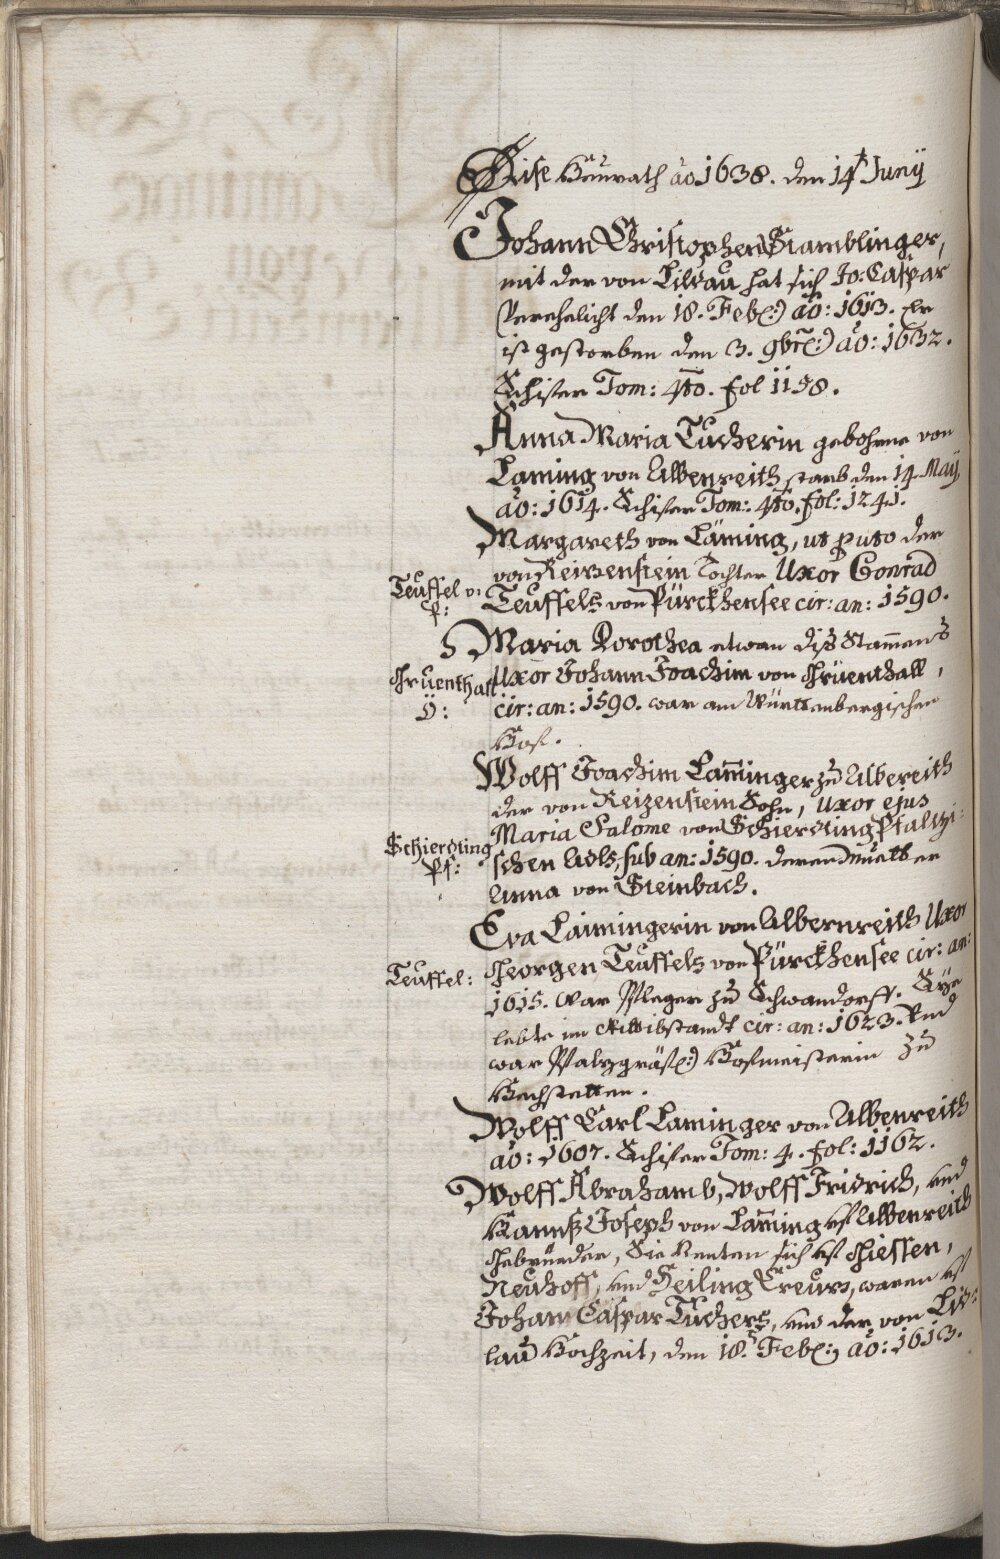 Dise Heürath ao 1638. den 14t Junÿ
Johann Christophen Stamblinger,
mit der von Lilgau hat sich Jo: Caspar
Verehelicht den 18. Feb: ao: 1613. Er
ist gestorben den 3. 9br: ao: 1632.
Schifer Tom: 4to. fol 1158.
Anna Maria Tucherin gebohrne von
Laming von Albenreith starb den 14 Maÿ
ao: 1614. Schifer Tom: 4to. fol: 1241.
Margareth von Läming, ut puto der
von Reizenstein Tochter Uxor Conrad
Teuffel v:
P:
Teuffels von Pürckhensee cir: an: 1590.
Maria Dorothea etwan diß Stammens
Gruenthall
Ö:
Uxor Johann Joachim von Grüenthall,
cir: an: 1590. war am Württenbergischen
Hof.
Wolff Joachim Laminger zu Albereith
der von Reizenstein Sohn, Uxor ejus
Schierdting
Pf:
Maria Salome von Schierdting Pfaltzi:
schen Adls, sub an: 1590. deren Muetter
Anna von Steinbach.
Eva Laimingerin von Albernreith Uxor
Teuffel:
Georgen Teuffels von Pürckhensee cir: an:
1615. War Pfleger zu Schwandorff. Sÿe
lebte im Wittibstandt cir: an: 1623. Und
war Pfalzgräf: Hofmeisterin zu
Hechstetten.
Wolff Carl Laminger von Albenreith
ao: 1607. Schifer Tom: 4. fol: 1162.
Wolff Abrahamb, Wolff Fridrich, und
Hannß Joseph von Laming uf Albenreith
Gebrueder, Sie Nenten sich uf Giessen,
Neuhoff, und Heiling Creutz, waren uf
Johann Caspar Tuchers, und der von Lid:
lau Hochzeit, den 18. Feb: ao: 1613.